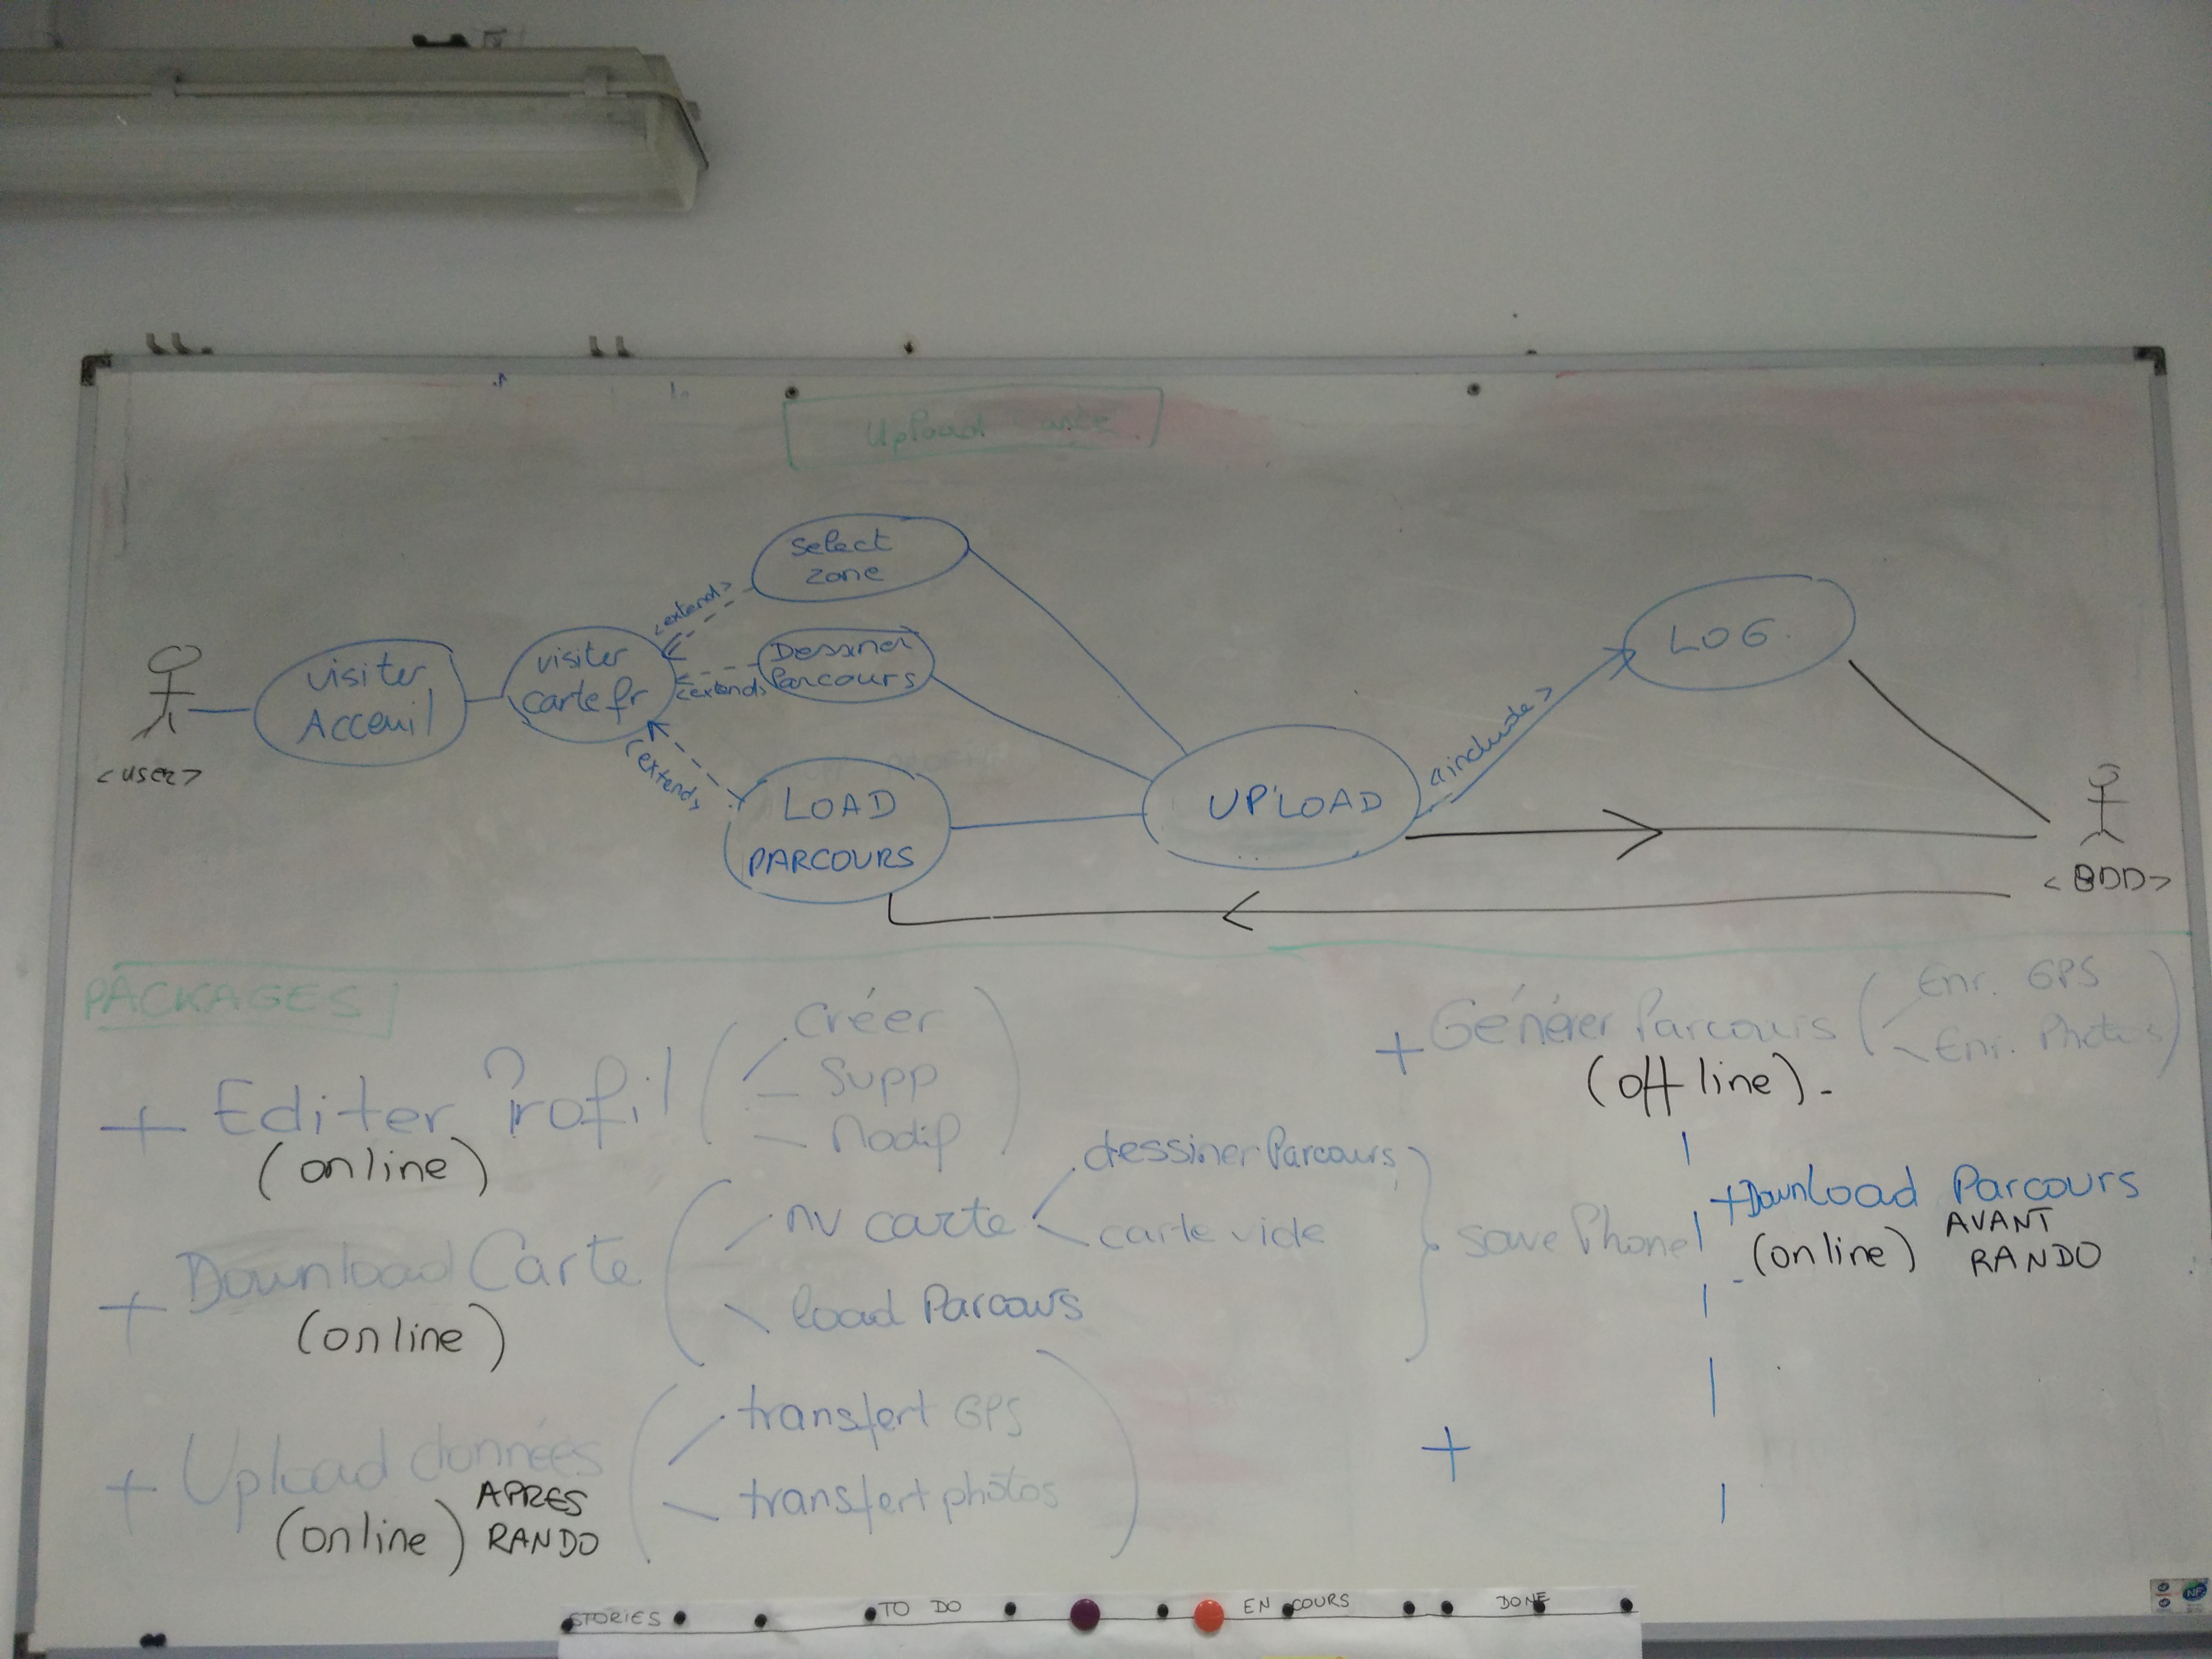 Upload carte
select
zone
<extend>
visiter
Acceuil
visiter
carte fr
Dessiner
Parcours
<extend>
<extend>
LOAD
PARCOURS
UPLOAD
<include>
LOG.
<user>
<BDD>
PACKAGES
+ Editer Profil
(online)
créer
Supp
Modif
+ Download Carte
(online)
nv carte
dessiner Parcours
carte vide
load Parcours
save Phone
+ Upload données
(online) APRES
RANDO
transfert GPS
transfert photos
+ Générer Parcours
(off line).
Enr. GPS
Enr. Photos
+Download Parcours
(online) AVANT
RANDO
+
STORIES
TO DO
EN COURS
DONE